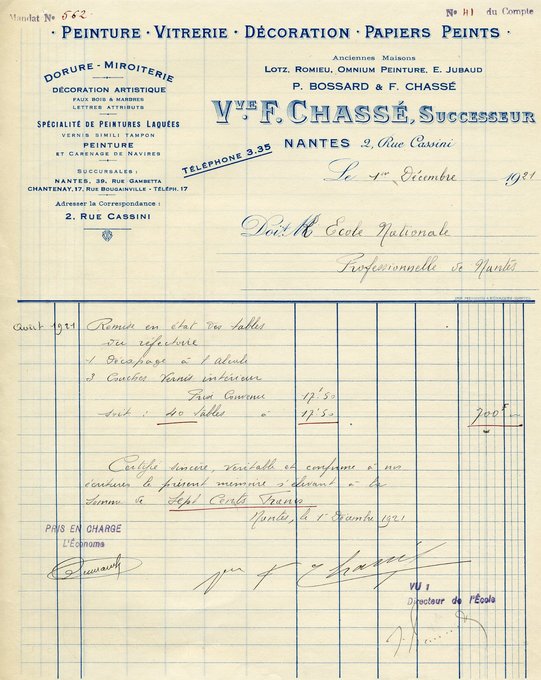 Mandat No 562
No 41 du Compte
· PEINTURE · VITRERIE · DÉCORATION · PAPIERS PEINTS ·
DORURE - MIROITERIE
DÉCORATION ARTISTIQUE
FAUX BOIS & MARBRES
LETTRES ATTRIBUTS
SPÉCIALITÉ DE PEINTURES LAQUÉES
VERNIS SIMILI TAMPON
PEINTURE
ET CARENAGE DE NAVIRES
SUCCURSALES :
NANTES, 39, RUE GAMBETTA
CHANTENAY, 17, RUE BOUGAINVILLE - TÉLÉPH. 17
Adresser la Correspondance :
2, RUE CASSINI
Anciennes Maisons
LOTZ, ROMIEU, OMNIUM PEINTURE, E. JUBAUD
P. BOSSARD & F. CHASSÉ
VVE F. CHASSÉ, SUCCESSEUR
NANTES 2, Rue Cassini
TÉLÉPHONE 3.35
Le 1er Décembre 1921
Doit M École Nationale
Professionnelle de Nantes
Août 1921 Remise en état des tables
du réfectoire
1 Décapage à l'alcali
3 Couches Vernis intérieur
Prix Convenu 17f50
soit : 40 tables à 17f50 700f
Certifié sincère, véritable et conforme à nos
écritures le présent mémoire s'élevant à la
somme de Sept Cents Francs
Nantes, le 1er Décembre 1921
PRIS EN CHARGE
L'Économe
pr F Chassé
VU :
Directeur de l'École